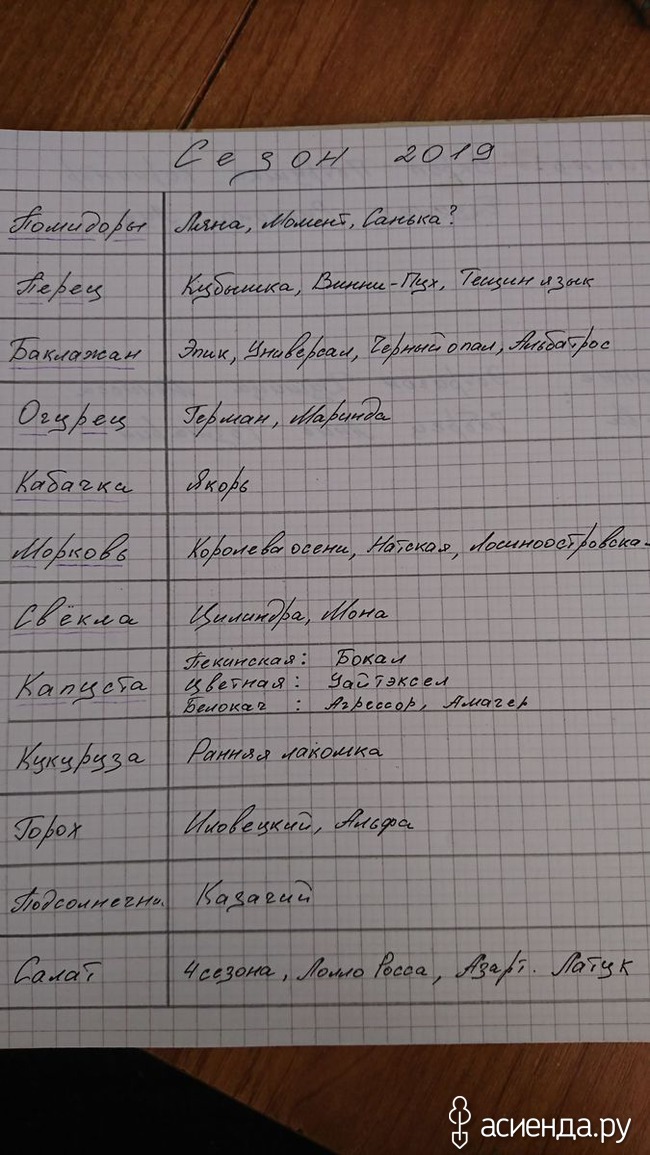 Сезон 2019
Помидоры Ляна, Момент, Санька?
Перец Кубышка, Винни-Пух, Тещин язык
Баклажан Эпик, Универсал, Черный опал, Альбатрос
Огурец Герман, Маринда
Кабачка Якорь
Морковь Королева осени, Натская, Лосиноостровска
Свёкла Цилиндра, Мона
Капуста Пекинская: Бокал
Цветная: Уайтэксел
Белокач : Агрессор, Амагер
Кукуруза Ранняя лакомка
Горох Иловецкий, Альфа
Подсолнечни Казачий
Салат 4 сезона, Лолло Росса, Азарт. Латук
асиенда.ру